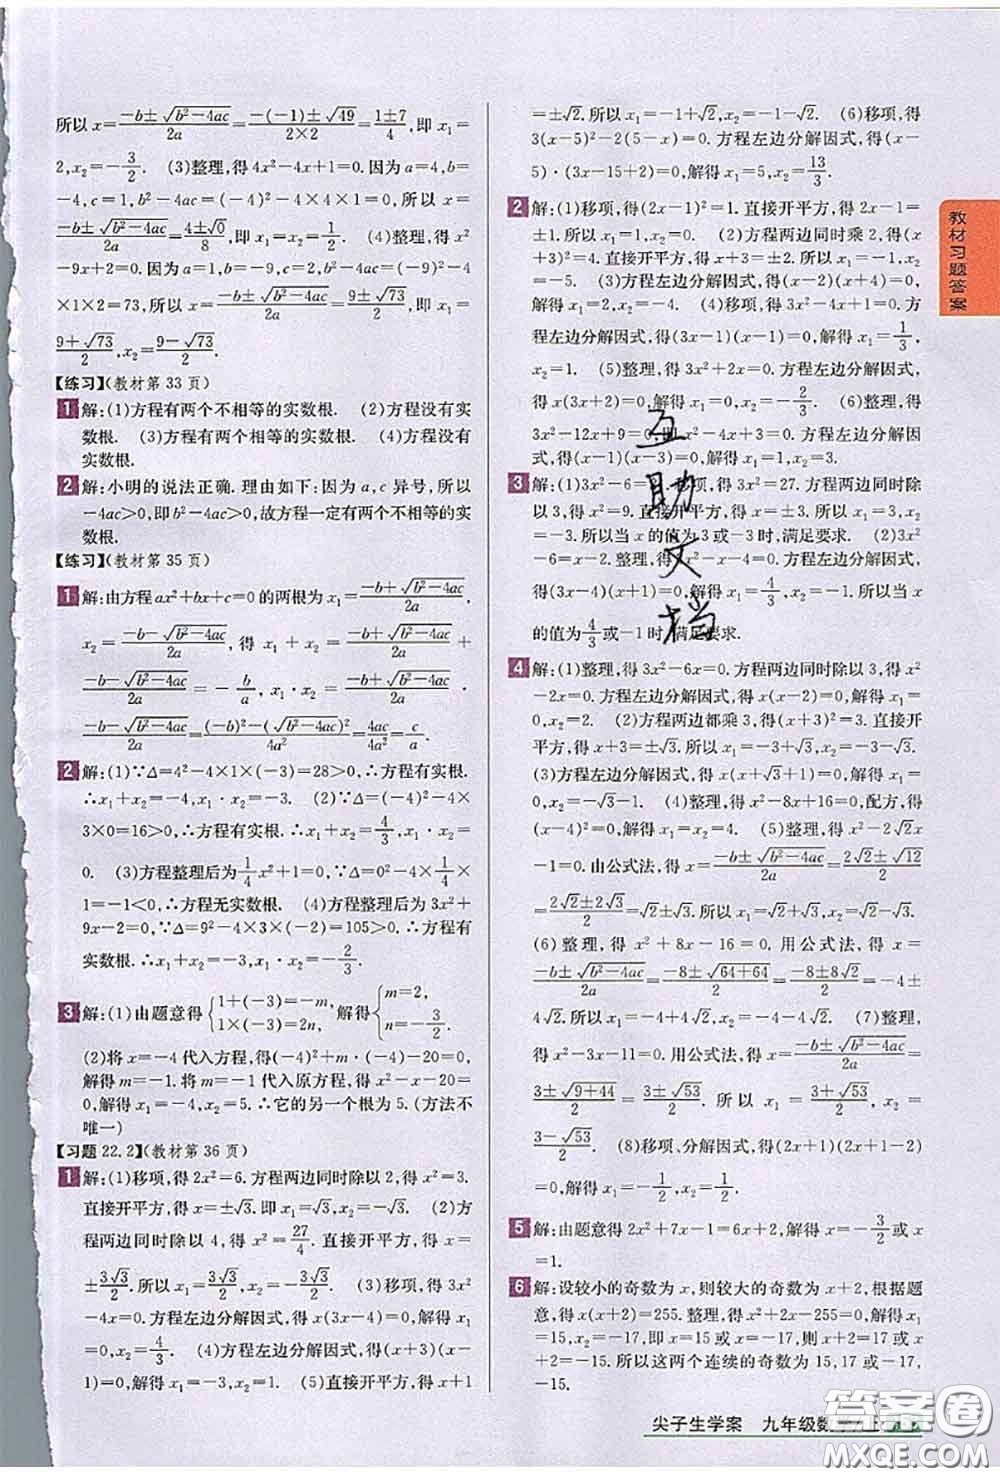 所以 x=(-b±√(b²-4ac))/2a=(-(-1)±√49)/(2×2)=(1±7)/4,即 x₁=
2,x₂=-3/2. (3)整理,得 4x²-4x+1=0.因为 a=4,b=
-4,c=1,b²-4ac=(-4)²-4×4×1=0,所以 x=
(-b±√(b²-4ac))/2a=(4±√0)/8,即 x₁=x₂=1/2. (4)整理,得 x²
-9x+2=0.因为 a=1,b=-9,c=2,b²-4ac=(-9)²-4×
1×2=73,所以 x=(-b±√(b²-4ac))/2a=(9±√73)/2,即 x₁=
(9+√73)/2,x₂=(9-√73)/2.
【练习】(教材第 33 页)
1 解:(1)方程有两个不相等的实数根. (2)方程没有实
数根. (3)方程有两个相等的实数根. (4)方程没有
实数根.
2 解:小明的说法正确.理由如下:因为 a,c 异号,所以
-4ac>0,即 b²-4ac>0,故方程一定有两个不相等的实
数根.
【练习】(教材第 35 页)
1 解:由方程 ax²+bx+c=0 的两根为 x₁=(-b+√(b²-4ac))/2a,
x₂=(-b-√(b²-4ac))/2a, 得 x₁+x₂=(-b+√(b²-4ac))/2a+
(-b-√(b²-4ac))/2a=-b/a, x₁·x₂=(-b+√(b²-4ac))/2a·
(-b-√(b²-4ac))/2a=((-b)²-(√(b²-4ac))²)/4a²=4ac/4a²=c/a.
2 解:(1)∵Δ=4²-4×1×(-3)=28>0,∴方程有实根.
∴x₁+x₂=-4,x₁·x₂=-3. (2)∵Δ=(-4)²-4×
3×0=16>0,∴方程有实根.∴x₁+x₂=4/3,x₁·x₂=
0. (3)方程整理后为1/4x²+1=0.∵Δ=0²-4×1/4×
1=-1<0,∴方程无实数根. (4)方程整理后为 3x²+
9x-2=0.∵Δ=9²-4×3×(-2)=105>0.∴方程有
实数根.∴x₁+x₂=-3,x₁x₂=-2/3.
3 解:(1)由题意得{1+(-3)=-m, 1×(-3)=2n, 解得{m=2, n=-3/2.
(2)将 x=-4 代入方程,得(-4)²+m·(-4)-20=0,
解得 m=-1.将 m=-1 代入原方程,得 x²-x-20=
0,解得 x₁=-4,x₂=5.∴它的另一个根为 5.(方法不
唯一)
【习题 22.2】(教材第 36 页)
1 解:(1)移项,得 2x²=6.方程两边同时除以 2,得 x²=3.
直接开平方,得 x=±√3.即 x₁=√3,x₂=-√3. (2)方
程两边同时除以 4,得 x²=27/4.直接开平方,得 x=
±3√3/2.所以 x₁=3√3/2,x₂=-3√3/2. (3)移项,得 3x²
-4x=0.方程左边分解因式,得 x(3x-4)=0.所以 x₁
=0,x₂=4/3. (4)方程左边分解因式,得(x+3)(x+1)
=0,解得 x₁=-3,x₂=-1. (5)直接开平方,得 x+1
=±√2.所以 x₁=-1+√2,x₂=-1-√2. (6)移项,得
3(x-5)²-2(5-x)=0.方程左边分解因式,得(x-
5)·(3x-15+2)=0,解得 x₁=5,x₂=13/3.
2 解:(1)移项,得(2x-1)²=1.直接开平方,得 2x-1=
±1.所以 x₁=1,x₂=0. (2)方程两边同时乘 2,得(x
+3)²=4.直接开平方,得 x+3=±2.所以 x₁=-1,x₂
=-5. (3)方程左边分解因式,得(x-4)(x+2)=0,
解得 x₁=4,x₂=-2. (4)移项,得 3x²-4x+1=0.方
程左边分解因式,得(3x-1)(x-1)=0,解得 x₁=1/3,
x₂=1. (5)整理,得 3x²+2x=0.方程左边分解因式,
得 x(3x+2)=0,解得 x₁=0,x₂=-2/3. (6)整理,得
3x²-12x+9=0,即 x²-4x+3=0.方程左边分解因
式,得(x-1)(x-3)=0.解得 x₁=1,x₂=3.
3 解:(1)3x²-6=21.移项,得 3x²=27.方程两边同时除
以 3,得 x²=9.直接开平方,得 x=±3.所以 x₁=3,x₂
=-3.所以当 x 的值为 3 或-3 时,满足要求. (2)3x²
-6=x-2.整理,得 3x²-x-4=0.方程左边分解因式,
得(3x-4)(x+1)=0,解得 x₁=4/3,x₂=-1.所以当 x
的值为4/3或-1 时,满足要求.
4 解:(1)整理,得 3x²-6x=0.方程两边同时除以 3,得 x²
-2x=0.方程左边分解因式,得 x(x-2)=0,解得 x₁=
0,x₂=2. (2)方程两边都乘 3,得(x-2)²=3.直接开
平方,得 x-2=±√3.所以 x₁=2+√3,x₂=2-√3.
(3)方程左边分解因式,得 x(√3x+1)=0.所以 x₁=0,x₂
=-√3/3. (4)整理,得 x²-8x+16=0,配方,
得(x-4)²=0.所以 x₁=x₂=4. (5)整理,得 x²-2√2x
-1=0.由公式法,得 x=(-b±√(b²-4ac))/2a=(2√2±√12)/2
=(2√2±2√3)/2=√2±√3.所以 x₁=√2+√3,x₂=√2-√3.
(6)整理,得 x²+8x-16=0.用公式法,得 x=
(-b±√(b²-4ac))/2a=(-8±√(64+64))/2=(-8±8√2)/2=-4±
4√2.所以 x₁=-4+4√2,x₂=-4-4√2. (7)整理,
得 x²-3x-11=0.用公式法,得 x=(-b±√(b²-4ac))/2a=
(3±√(9+44))/2=(3±√53)/2.所以 x₁=(3+√53)/2,x₂=
(3-√53)/2. (8)移项、分解因式,得(2x+1)(2x-1)
=0,解得 x₁=-1/2,x₂=1/2.
5 解:由题意得 2x²+7x-1=6x+2,解得 x=-3/2或 x
=1.
6 解:设较小的奇数为 x,则较大的奇数为 x+2,根据题
意,得 x(x+2)=255.整理,得 x²+2x-255=0,解得 x₁
=15,x₂=-17,即 x=15 或 x=-17,则 x+2=17 或 x+2
=-15.所以这两个连续的奇数为 15,17 或-17,
-15.
教材习题答案
互
助
文
档
尖子生学案 九年级数学(上)
答案圈
MXQE.COM